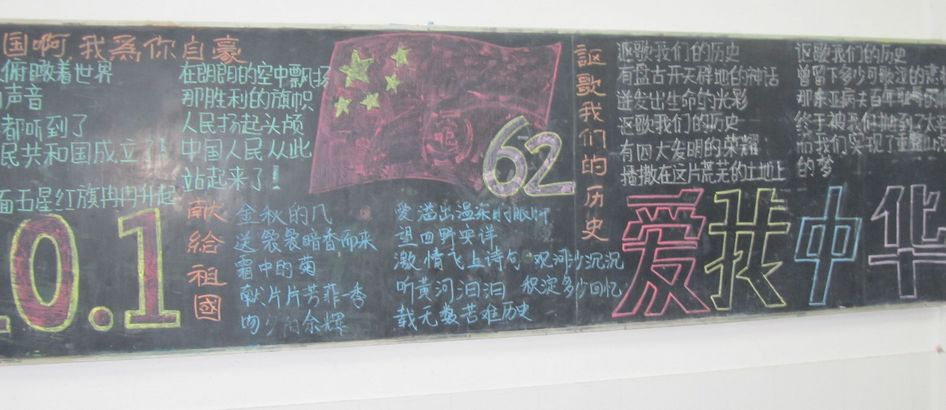 国啊 我為你自豪
俯瞰着世界
声音
都听到了
民共和国成立了！
面五星红旗冉冉升起
在朗朗的空中飘扬
那胜利的旗帜
人民扬起头颅
中国人民从此
站起来了！
0.1
62
献给祖國
金秋的
送袅袅暗香而来
霜中的菊
献片片芳菲
余辉
爱溢出温柔的眼
望四野安详
激情飞上诗句
听黄河汩汩
载无数苦难历史
观河沙沉沉
积淀多少回忆
謳歌我们的历史
讴歌我们的历史
有盘古开天辟地的神话
迸发出生命的光彩
讴歌我们的历史
有四大发明的荣耀
播撒在这片荒芜的土地上
讴歌我们的历史
曾留下多少可歌泣的
那东亚病夫百年耻辱的
终于被我们
而我们实现了
的梦
爱我中华